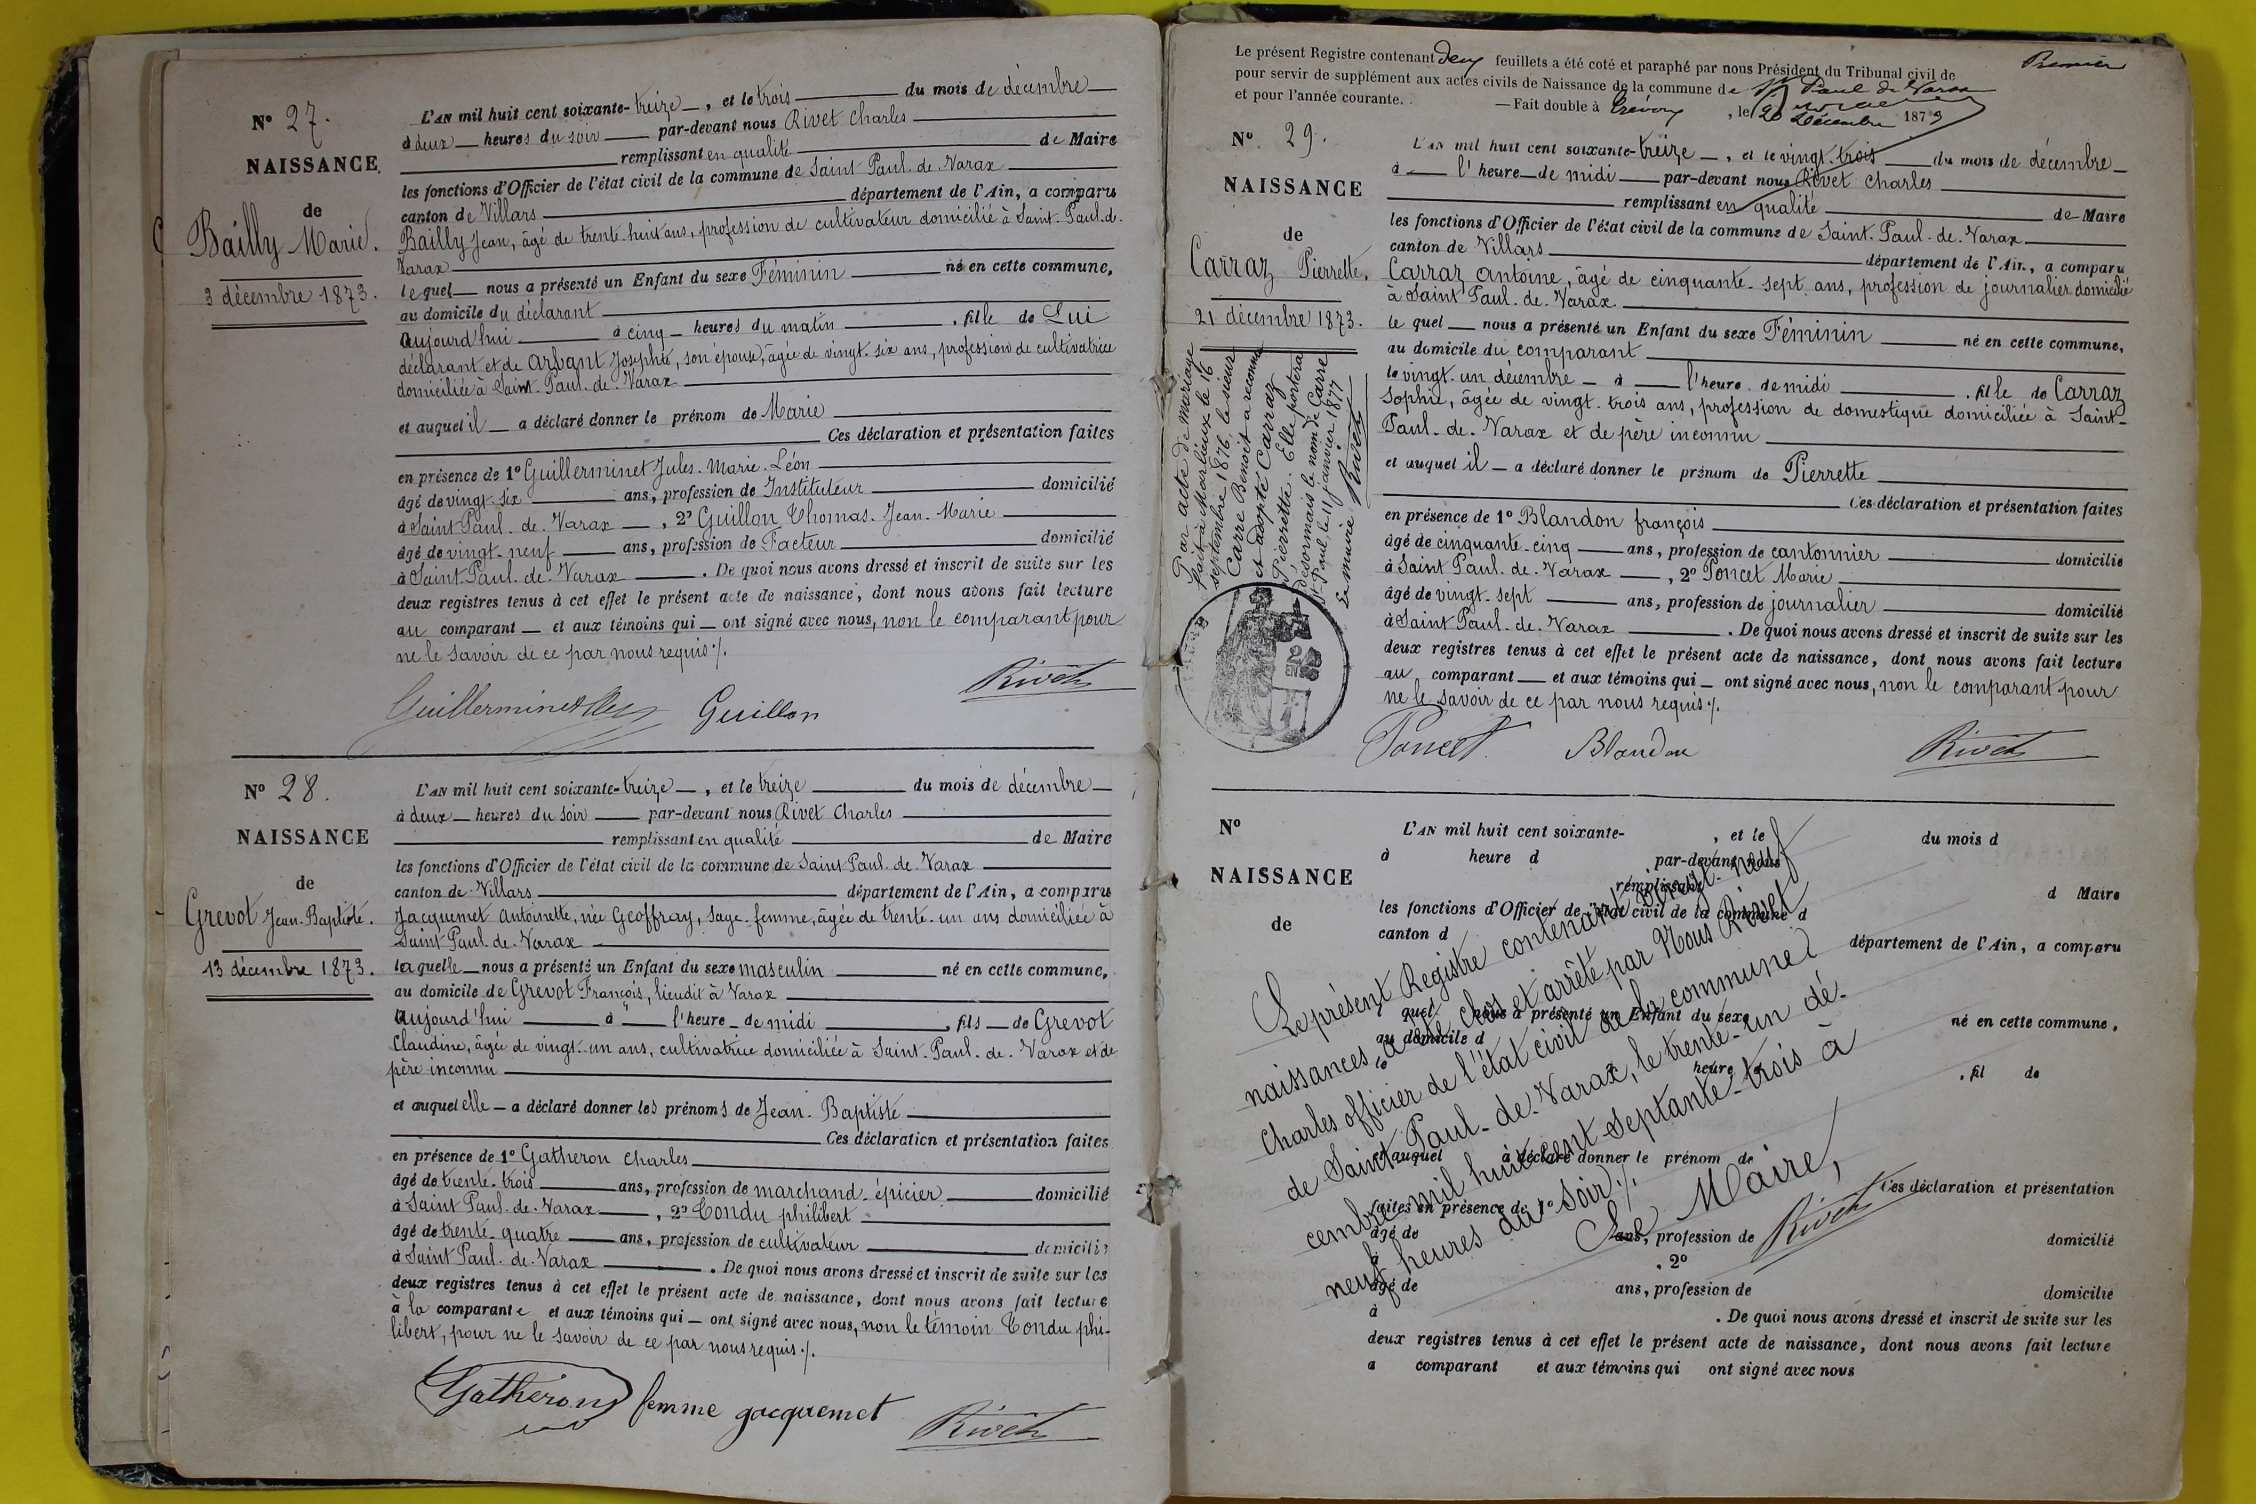 N° 27.
NAISSANCE
de
Bailly Marie.
3 décembre 1873.
L'AN mil huit cent soixante-treize, et le trois du mois de décembre
à deux heures du soir par-devant nous Rivet Charles
remplissant en qualité de Maire
les fonctions d'Officier de l'état civil de la commune de Saint Paul. de. Varax
canton de Villars département de l'Ain, a comparu
Bailly Jean, âgé de trente-huit ans, profession de cultivateur domicilié à Saint-Paul. de.
Varax
lequel nous a présenté un Enfant du sexe Féminin né en cette commune,
au domicile du déclarant
aujourd'hui à cinq heures du matin, fille de Lui
déclarant et de Arbant Josephte, son épouse, âgée de vingt-six ans, profession de cultivatrice
domiciliée à Saint-Paul. de. Varax
et auquel il a déclaré donner le prénom de Marie
Ces déclaration et présentation faites
en présence de 1° Guillerminet Jules. Marie. Léon
âgé de vingt-six ans, profession de Instituteur domicilié
à Saint Paul. de. Varax, 2° Guillon Thomas. Jean. Marie
âgé de vingt-neuf ans, profession de Facteur domicilié
à Saint Paul. de. Varax. De quoi nous avons dressé et inscrit de suite sur les
deux registres tenus à cet effet le présent acte de naissance, dont nous avons fait lecture
au comparant et aux témoins qui ont signé avec nous, non le comparant pour
ne le savoir de ce par nous requis ./.
Guillerminet Guillon Rivet
N° 28.
NAISSANCE
de
Grevot Jean-Baptiste.
13 décembre 1873.
L'AN mil huit cent soixante-treize, et le treize du mois de décembre
à deux heures du soir par-devant nous Rivet Charles
remplissant en qualité de Maire
les fonctions d'Officier de l'état civil de la commune de Saint-Paul. de. Varax
canton de Villars département de l'Ain, a comparu
Jacquemet Antoinette, née Geoffray, sage-femme, âgée de trente-un ans domiciliée à
Saint-Paul. de. Varax
laquelle nous a présenté un Enfant du sexe masculin né en cette commune,
au domicile de Grevot François, lieudit à Varax
aujourd'hui à l'heure de midi, fils de Grevot
Claudine, âgée de vingt-un ans, cultivatrice domiciliée à Saint. Paul. de. Varax et de
père inconnu
et auquel elle a déclaré donner les prénoms de Jean-Baptiste
Ces déclaration et présentation faites
en présence de 1° Gatheron Charles
âgé de trente-trois ans, profession de marchand-épicier domicilié
à Saint Paul. de. Varax, 2° Condu philibert
âgé de trente-quatre ans, profession de cultivateur domicilié
à Saint Paul. de. Varax. De quoi nous avons dressé et inscrit de suite sur les
deux registres tenus à cet effet le présent acte de naissance, dont nous avons fait lecture
à la comparante et aux témoins qui ont signé avec nous, non le témoin Condu phi-
libert, pour ne le savoir de ce par nous requis ./.
Gatheron femme jacquemet Rivet
Premier
Le présent Registre contenant deux feuillets a été coté et paraphé par nous Président du Tribunal civil de
pour servir de supplément aux actes civils de Naissance de la commune de St Paul de Varax
et pour l'année courante. — Fait double à Trévoux, le 20 Décembre 1873
N° 29.
NAISSANCE
de
Carraz Pierrette.
21 décembre 1873.
Par acte de mariage
fait à Marlieux le 16
septembre 1876, le sieur
Carre Benoit a reconnu
et adopté Carraz
Pierrette. Elle portera
désormais le nom de Carre
St Paul, le 11 janvier 1877
Le maire Rivet
L'AN mil huit cent soixante-treize, et le vingt-trois du mois de décembre
à l'heure de midi par-devant nous Rivet Charles
remplissant en qualité de Maire
les fonctions d'Officier de l'état civil de la commune de Saint. Paul. de. Varax
canton de Villars département de l'Ain, a comparu
Carraz Antoine, âgé de cinquante-sept ans, profession de journalier domicilié
à Saint Paul. de. Varax
le quel nous a présenté un Enfant du sexe Féminin né en cette commune,
au domicile du comparant
le vingt-un décembre à l'heure de midi, fille de Carraz
Sophie, âgée de vingt-trois ans, profession de domestique domiciliée à Saint-
Paul. de. Varax et de père inconnu
et auquel il a déclaré donner le prénom de Pierrette
Ces déclaration et présentation faites
en présence de 1° Blandon françois
âgé de cinquante-cinq ans, profession de cantonnier domicilié
à Saint Paul. de. Varax, 2° Poncet Marie
âgé de vingt-sept ans, profession de journalier domicilié
à Saint Paul. de. Varax. De quoi nous avons dressé et inscrit de suite sur les
deux registres tenus à cet effet le présent acte de naissance, dont nous avons fait lecture
au comparant et aux témoins qui ont signé avec nous, non le comparant pour
ne le savoir de ce par nous requis ./.
Poncet Blandon Rivet
N°
NAISSANCE
de
L'AN mil huit cent soixante- , et le du mois d
à heure d par-devant nous
remplissant d Maire
les fonctions d'Officier de l'état civil de la commune d
canton d département de l'Ain, a comparu
quel nous a présenté un Enfant du sexe né en cette commune,
au domicile d
le heure , fil de
et auquel a déclaré donner le prénom de
Ces déclaration et présentation
faites en présence de 1°
âgé de ans, profession de domicilié
, 2°
âgé de ans, profession de domicilié
à . De quoi nous avons dressé et inscrit de suite sur les
deux registres tenus à cet effet le présent acte de naissance, dont nous avons fait lecture
a comparant et aux témoins qui ont signé avec nous
Le présent Registre contenant vingt-neuf
naissances a été clos et arrêté par Nous Rivet
Charles officier de l'état civil de la commune
de Saint Paul-de-Varax, le trente-un dé-
cembre mil huit cent septante-trois à
neuf heures du soir ./.
Le Maire,
Rivet